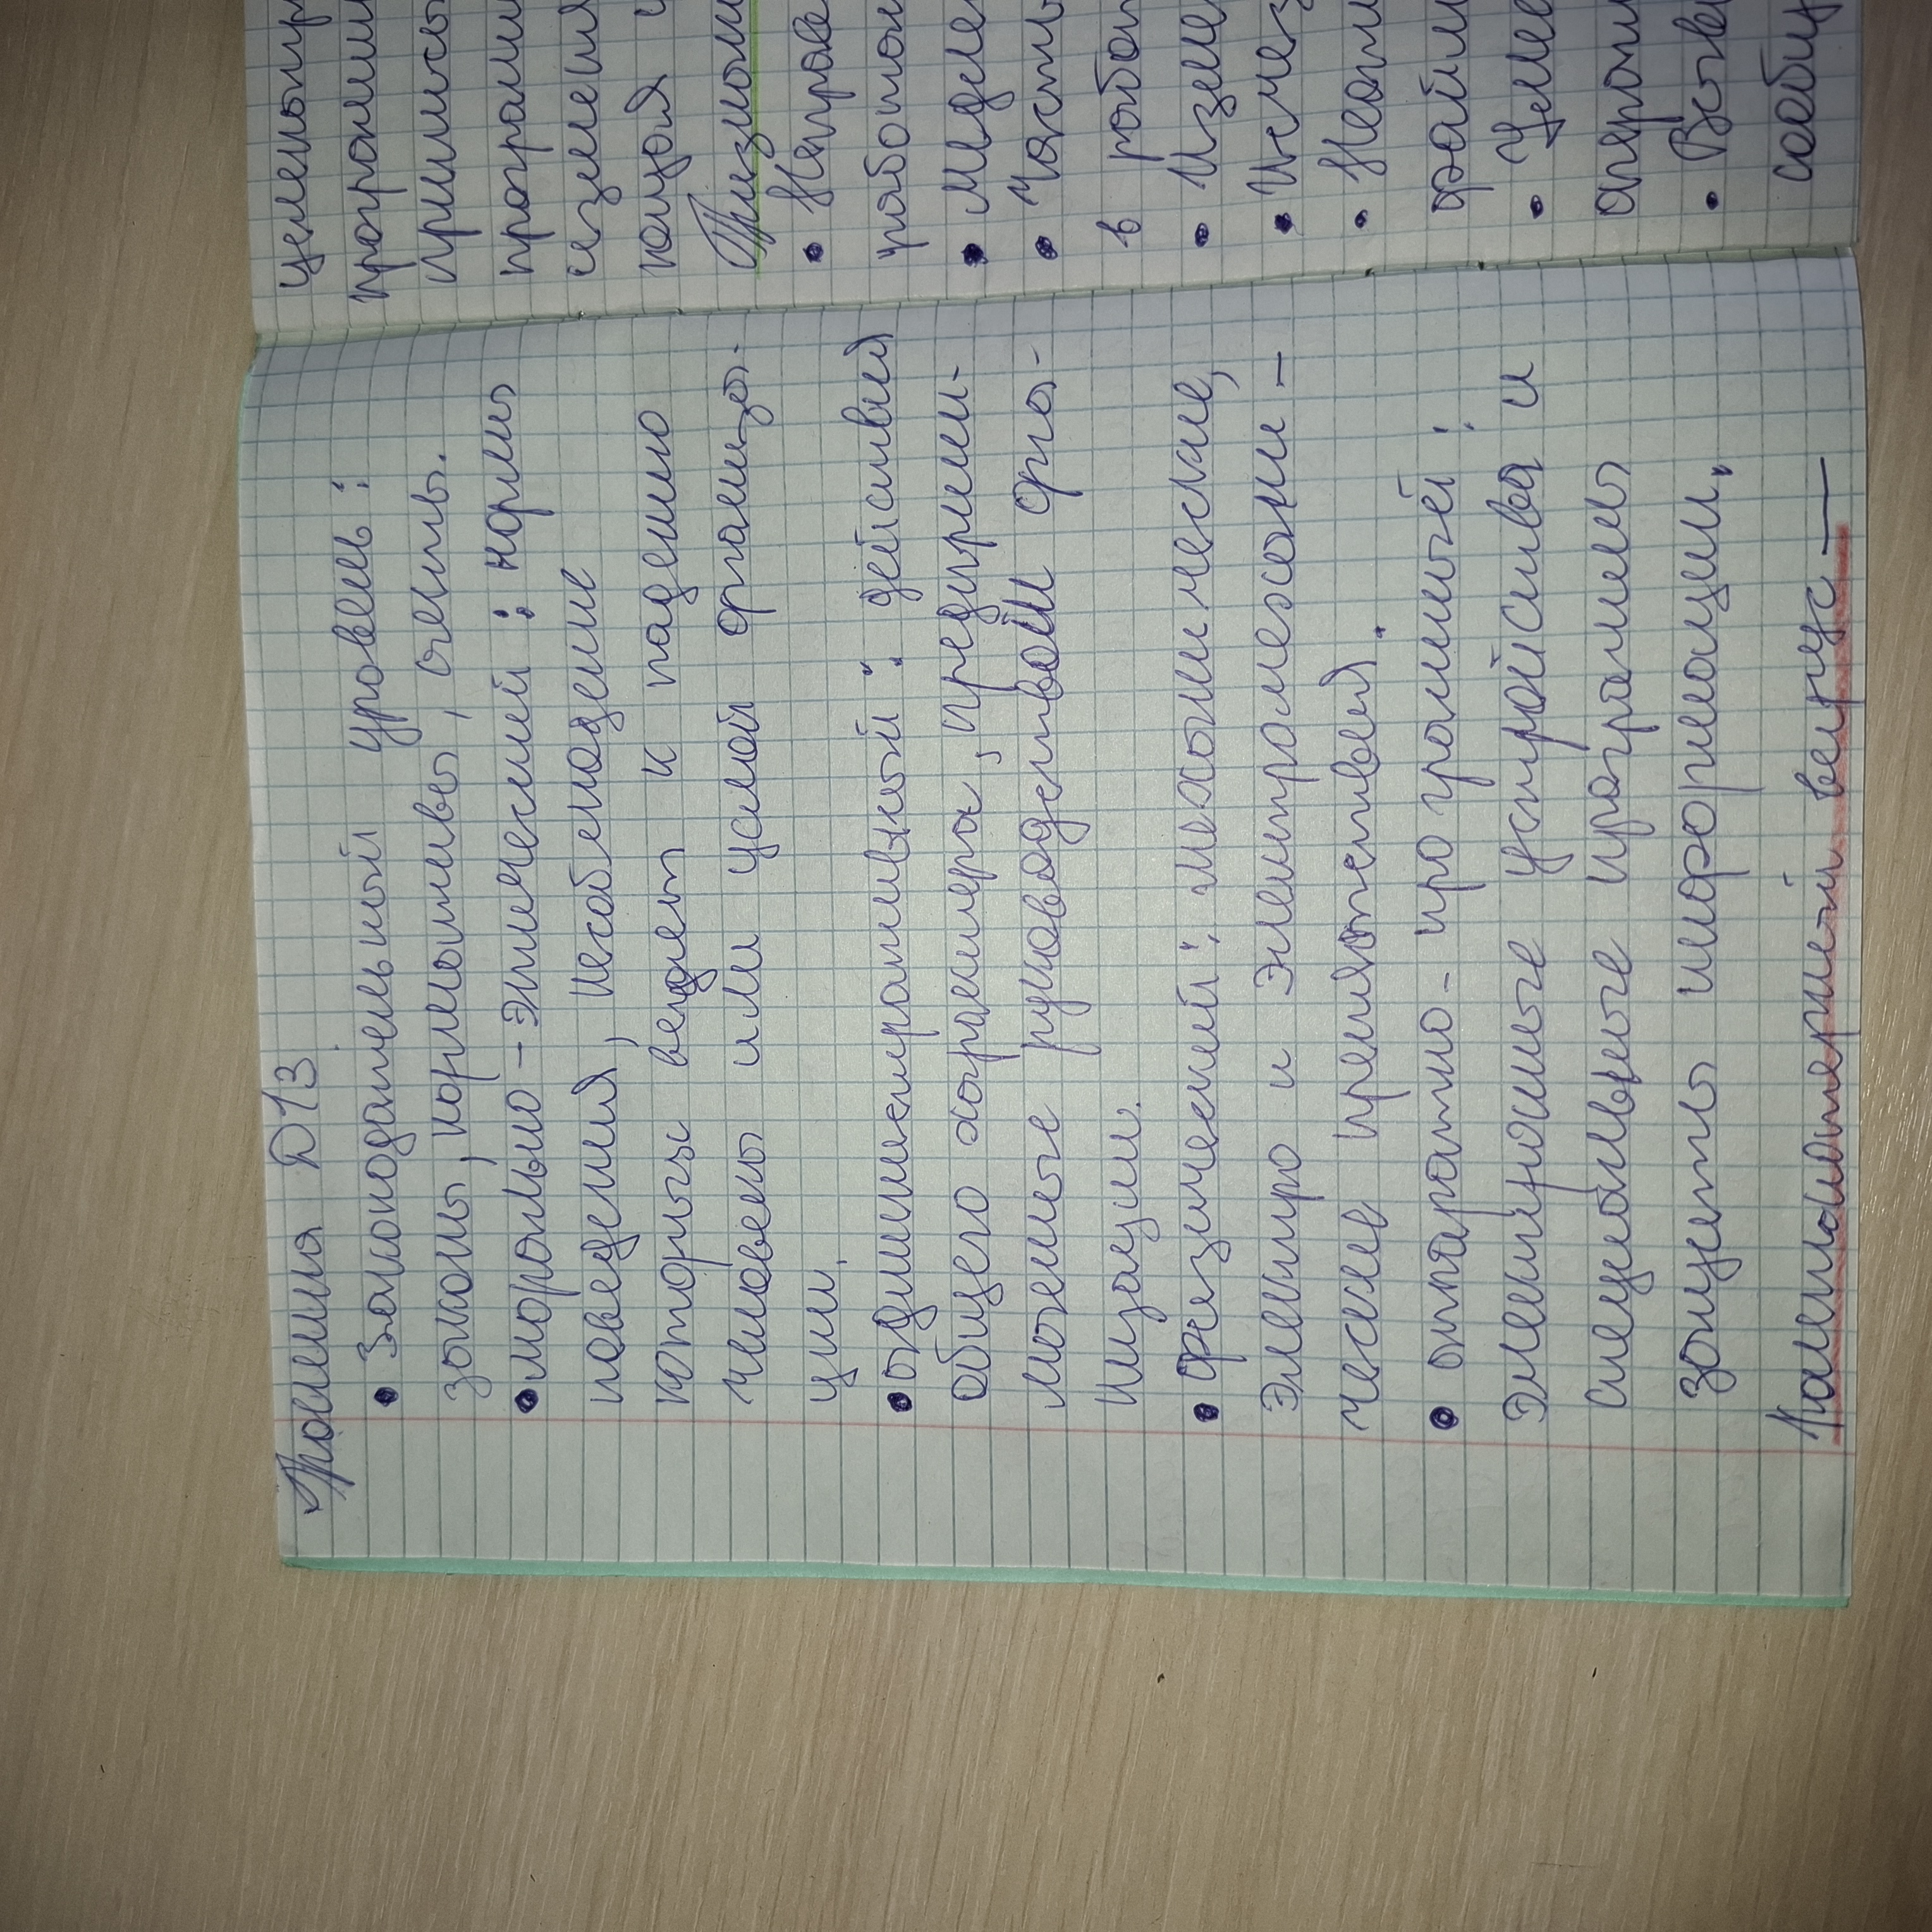 Уровни D13
• Законодательный уровень:
законы, нормативы, очень.
• морально-этический: нормы
поведения, несоблюдение
которых ведет к падению
человека или усилой организа-
ции.
• административный: действия
общего характера, предприни-
маемые руководством орга-
низации.
• физический: механические,
электро и электромехани-
ческие препятствия.
• аппаратно-программный:
электронные устройства и
специальные программы
защиты информации.
Компьютерный вирус —
целенапр
программ
приписы
програм
изменения
кация и
Признаки
• Неправ
работон
• Медле
• Часты
в работ
• Измен
• Исчез
• Невозм
файл
• Умен
операти
• Вывод
сообщ